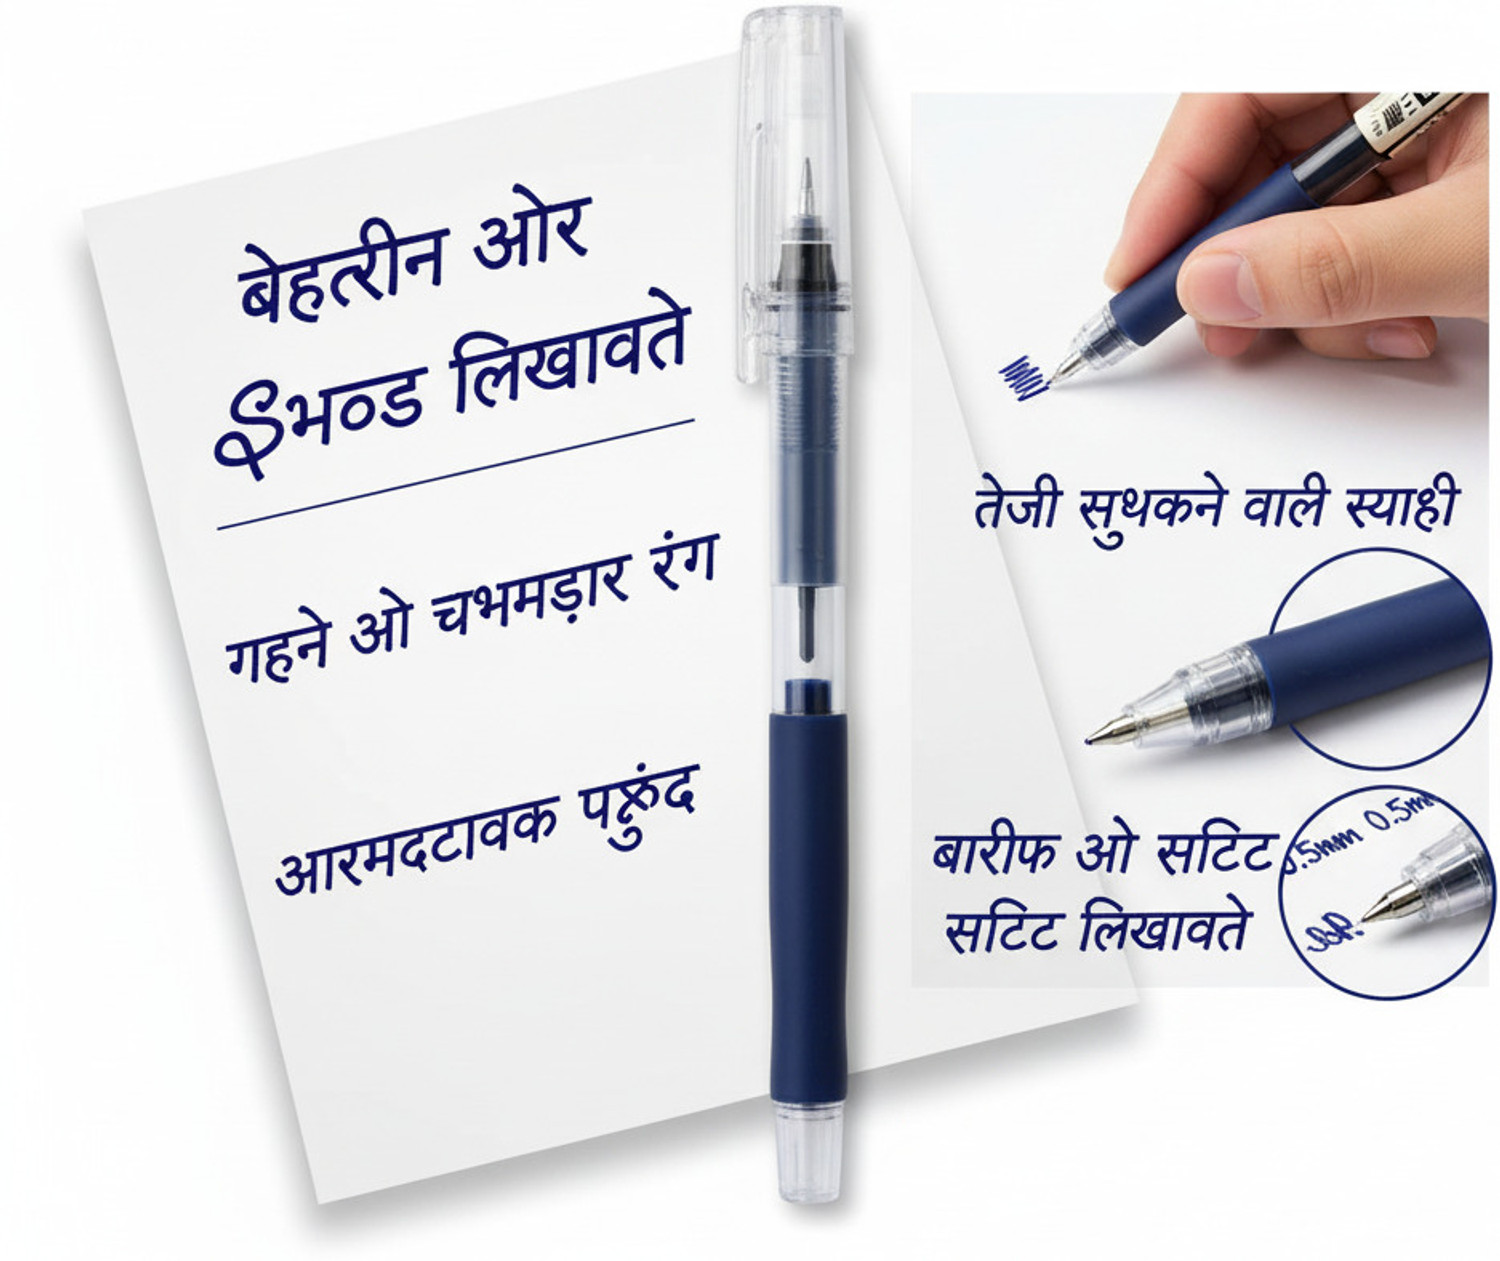 बेहत्रीन ओर
लिखावते
गहने ओ चभमड़ार रंग
आरमदटावक
तेजी सुथकने वाली स्याही
बारीफ ओ सटिट
सटिट लिखावते
0.5mm 0.5mm